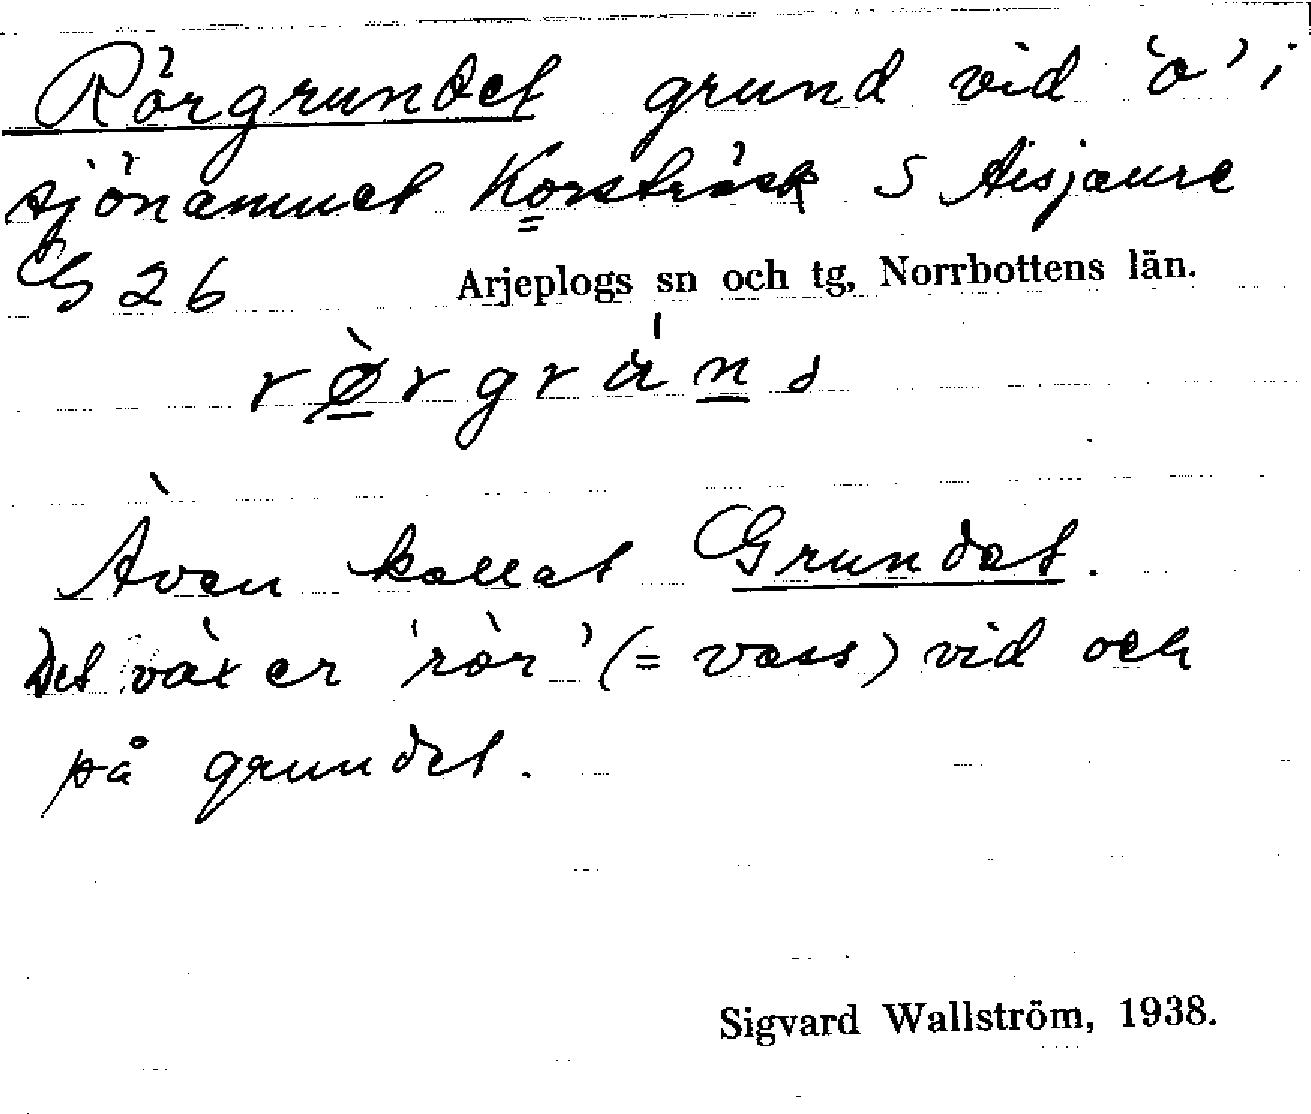 Rörgrundet grund vid 'o' i
sjönamnet Korsträsk S Aisjaure
G 26 Arjeplogs sn och tg, Norrbottens län.
Även kallat Grundet.
Det växer 'rör' (= vass) vid och
på grundet.
Sigvard Wallström, 1938.